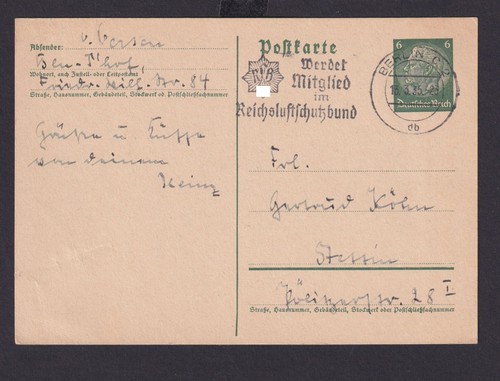 Absender: v. Versen
Bln.-Thof,
Wohnort, auch Zustell- oder Leitpostamt
Friedr. Wilh. Str. 84
Straße, Hausnummer, Gebäudeteil, Stockwerk od. Postschließfachnummer
Grüße u. Küsse
von deinem
Heinz
Postkarte
6 6
Deutsches Reich
BERLIN C
Werdet
Mitglied
im
Reichsluftschutzbund
db
Frl.
Gertrud Köhn
Stettin
Pölitzerstr. 28 I.
Straße, Hausnummer, Gebäudeteil, Stockwerk oder Postschließfachnummer